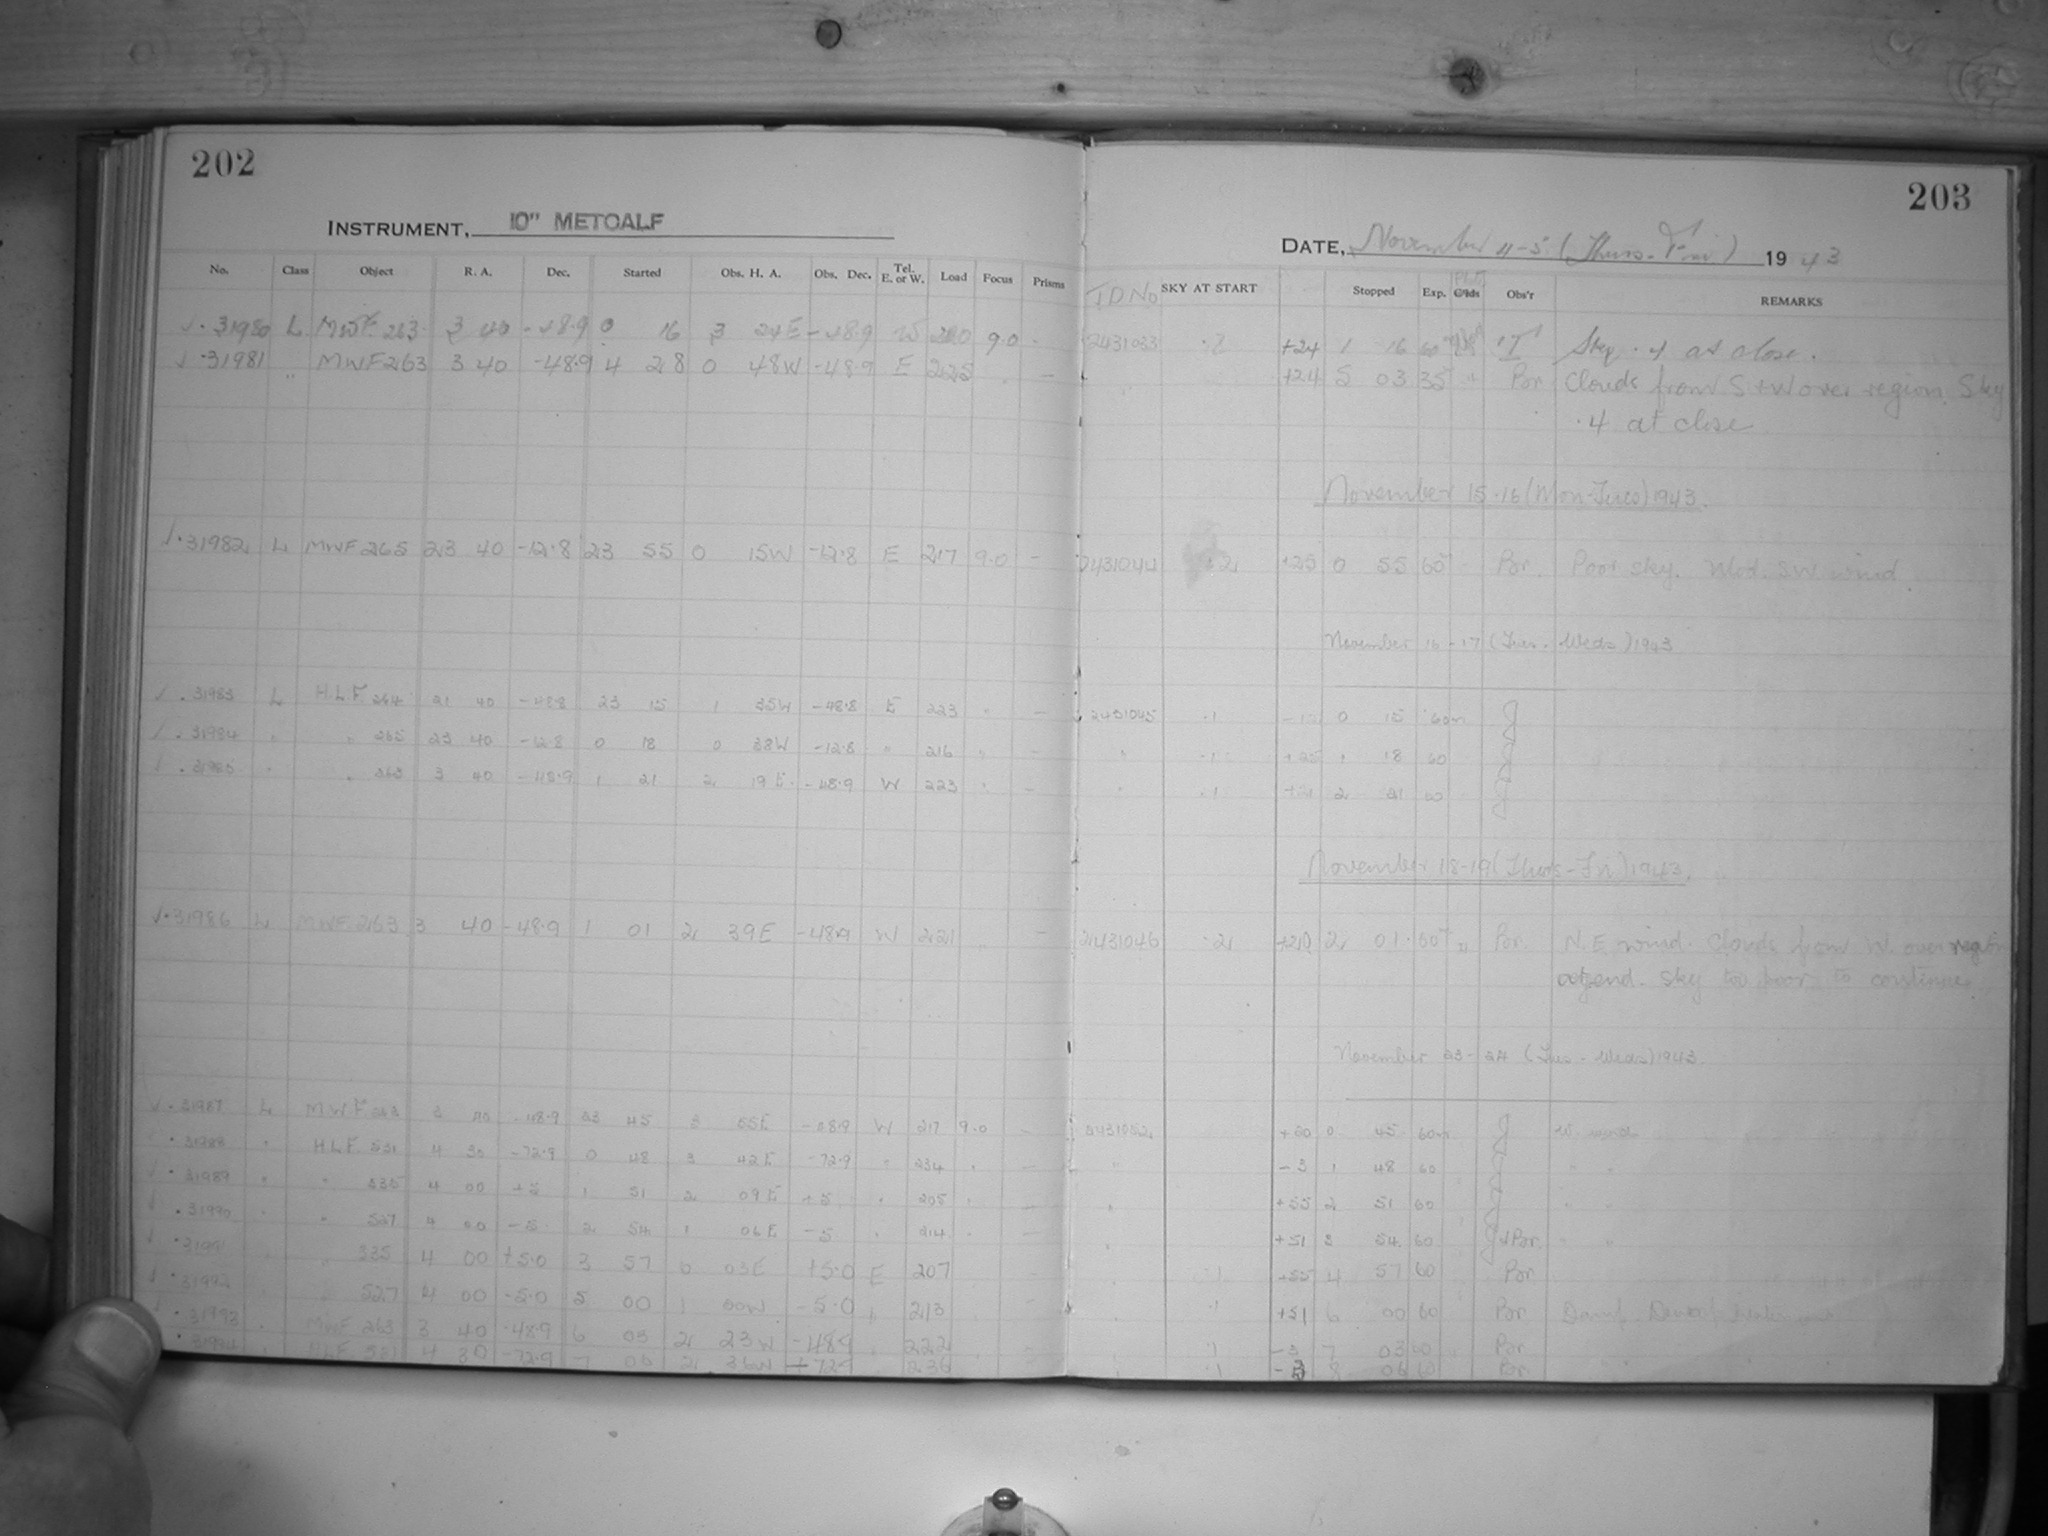 202
INSTRUMENT, 10" METCALF
No. Class Object R. A. Dec. Started Obs. H. A. Obs. Dec. Tel. E. or W. Load Focus Prisms
✓ · 31980 L MWF 263 3 40 -48.9 0 16 3 24E -48.9 W 210 9.0 -
✓ · 31981 " MWF 263 3 40 -48.9 4 28 0 48W -48.9 E 225 -
✓ · 31982 L MWF 265 23 40 -12.8 23 55 0 15W -12.8 E 217 9.0 -
✓ · 31983 L HLF 264 21 40 -48.8 23 15 1 35W -48.8 E 223 " -
✓ · 31984 " " 265 23 40 -12.8 0 18 0 38W -12.8 " 216 " -
✓ · 31985 " " 263 3 40 -48.9 1 21 2 19E -48.9 W 223 " -
✓ · 31986 L MWF 263 3 40 -48.9 1 01 2 39E -48.9 W 221 " -
✓ · 31987 L MWF 263 3 40 -48.9 23 45 3 55E -48.9 W 217 9.0 -
· 31988 " HLF 531 4 30 -72.9 0 48 3 42E -72.9 " 234 " -
✓ · 31989 " " 335 4 00 +5 1 51 2 09E +5 " 205 "
✓ · 31990 " " 527 4 00 -5 2 54 1 06E -5 " 214
✓ · 31991 " 335 4 00 +5.0 3 57 0 03E +5.0 E 207
✓ · 31992 " 527 4 00 -5.0 5 00 1 00W -5.0 " 213
✓ · 31993 MWF 263 3 40 -48.9 6 03 2 23W -48.9 222
· 31994 HLF 531 4 30 -72.9 7 06 2 36W 236
203
DATE, November 4-5 (Thurs-Fri) 1943
JD No SKY AT START Stopped Exp. Obs'r REMARKS
2431033 .2 +24 1 16 60 Sky .4 at close.
" +24 5 03 35 " Por Clouds from S + W over region. Sky
.4 at close
November 15-16 (Mon-Tues) 1943.
2431044 .2 +25 0 55 60 Por. Poor sky. Mod. SW wind
November 16-17 (Tues-Weds) 1943
2431045 .1 0 15 60m
" .1 +25 1 18 60
" .1 2 21 60
November 18-19 (Thurs-Fri) 1943.
2431046 .2 2 01 60 " Por. N.E. wind. Clouds from W. over region
at end. Sky too poor to continue
November 23-24 (Tues-Weds) 1943
+20 0 45 60m W. wind
" -3 1 48 60 " "
" +55 2 51 60 " "
" +51 3 54 60 + Por. " "
" .1 +55 4 57 60 Por
" .1 +51 6 00 60 Por
.1 -3 7 03 60 Por
.1 -3 8 06 60 Por